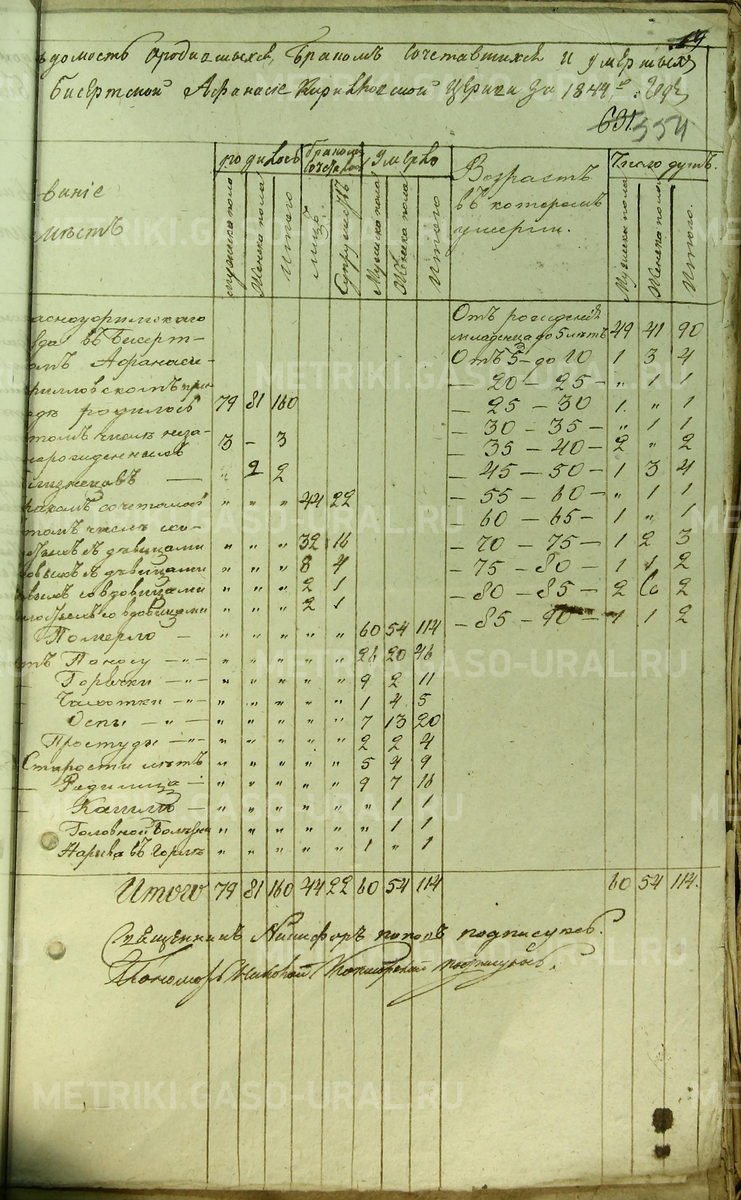 19
ѣдомость о родившихся, бракомъ сочетавшихся и умершихъ
Бисертской Афанасіе Кирилловской церкви за 1844й годъ
631 554
родилось | бракомъ сочетались | умерло | Возрастъ въ которомъ умерли. | Число душъ.
ваніе мѣстъ | мужеска пола | Женска пола | Итого | лицъ | Супружествъ | Мужеска пола | Женска пола | Итого | Мужеска пола | Женска пола | Итого.
асноуфимскаго | Отъ рожденія
да въ Бисерт- | младенца до 5 лѣтъ 49 41 90
омъ Афанасі- | Отъ 5 - до 10 | 1 3 4
рилловскомъ при- | — 20 — 25 — „ 1 1
дѣ родилось 79 81 160 | — 25 — 30 1 „ 1
томъ числѣ неза- | — 30 — 35 — „ 1 1
норожденныхъ 3 — 3 | — 35 — 40 — 2 „ 2
лизнецовъ — „ 2 2 | — 45 — 50 — 1 3 4
ракомъ сочеталось „ „ „ 44 22 | — 55 — 60 — „ 1 1
томъ числѣ хо- | — 60 — 65 — 1 „ 1
ыхъ съ дѣвицами „ „ „ 32 16 | — 70 — 75 — 1 2 3
овыхъ съ дѣвицами „ „ „ 8 4 | — 75 — 80 — 1 1 2
выхъ со вдовицами „ „ „ 2 1 | — 80 — 85 — 2 „ 2
лостыхъ со вдовицами „ „ „ 2 1 | — 85 — 90 — 1 1 2
Померло — „ „ „ „ „ 60 54 114
тъ Поносу — „ — „ „ „ „ „ 26 20 46
— Горячки — „ — „ „ „ „ „ 9 2 11
— Чахотки — „ — „ „ „ „ „ 1 4 5
— Оспы — „ — „ „ „ „ „ 7 13 20
— Простуды — „ — „ „ „ „ „ 2 2 4
Старости лѣтъ „ „ „ „ „ 5 4 9
— Родимца — „ „ „ „ „ 9 7 16
— Кашлю — „ „ „ „ „ „ 1 1
Головной болѣзни „ „ „ „ „ „ 1 1
Нарыва въ горлѣ „ „ „ „ „ 1 „ 1
Итого 79 81 160 44 22 60 54 114 | 60 54 114.
Священникъ Никифоръ Поповъ подписуюсь.
Пономарь Николай подписуюсь.
METRIKI.GASO-URAL.RU